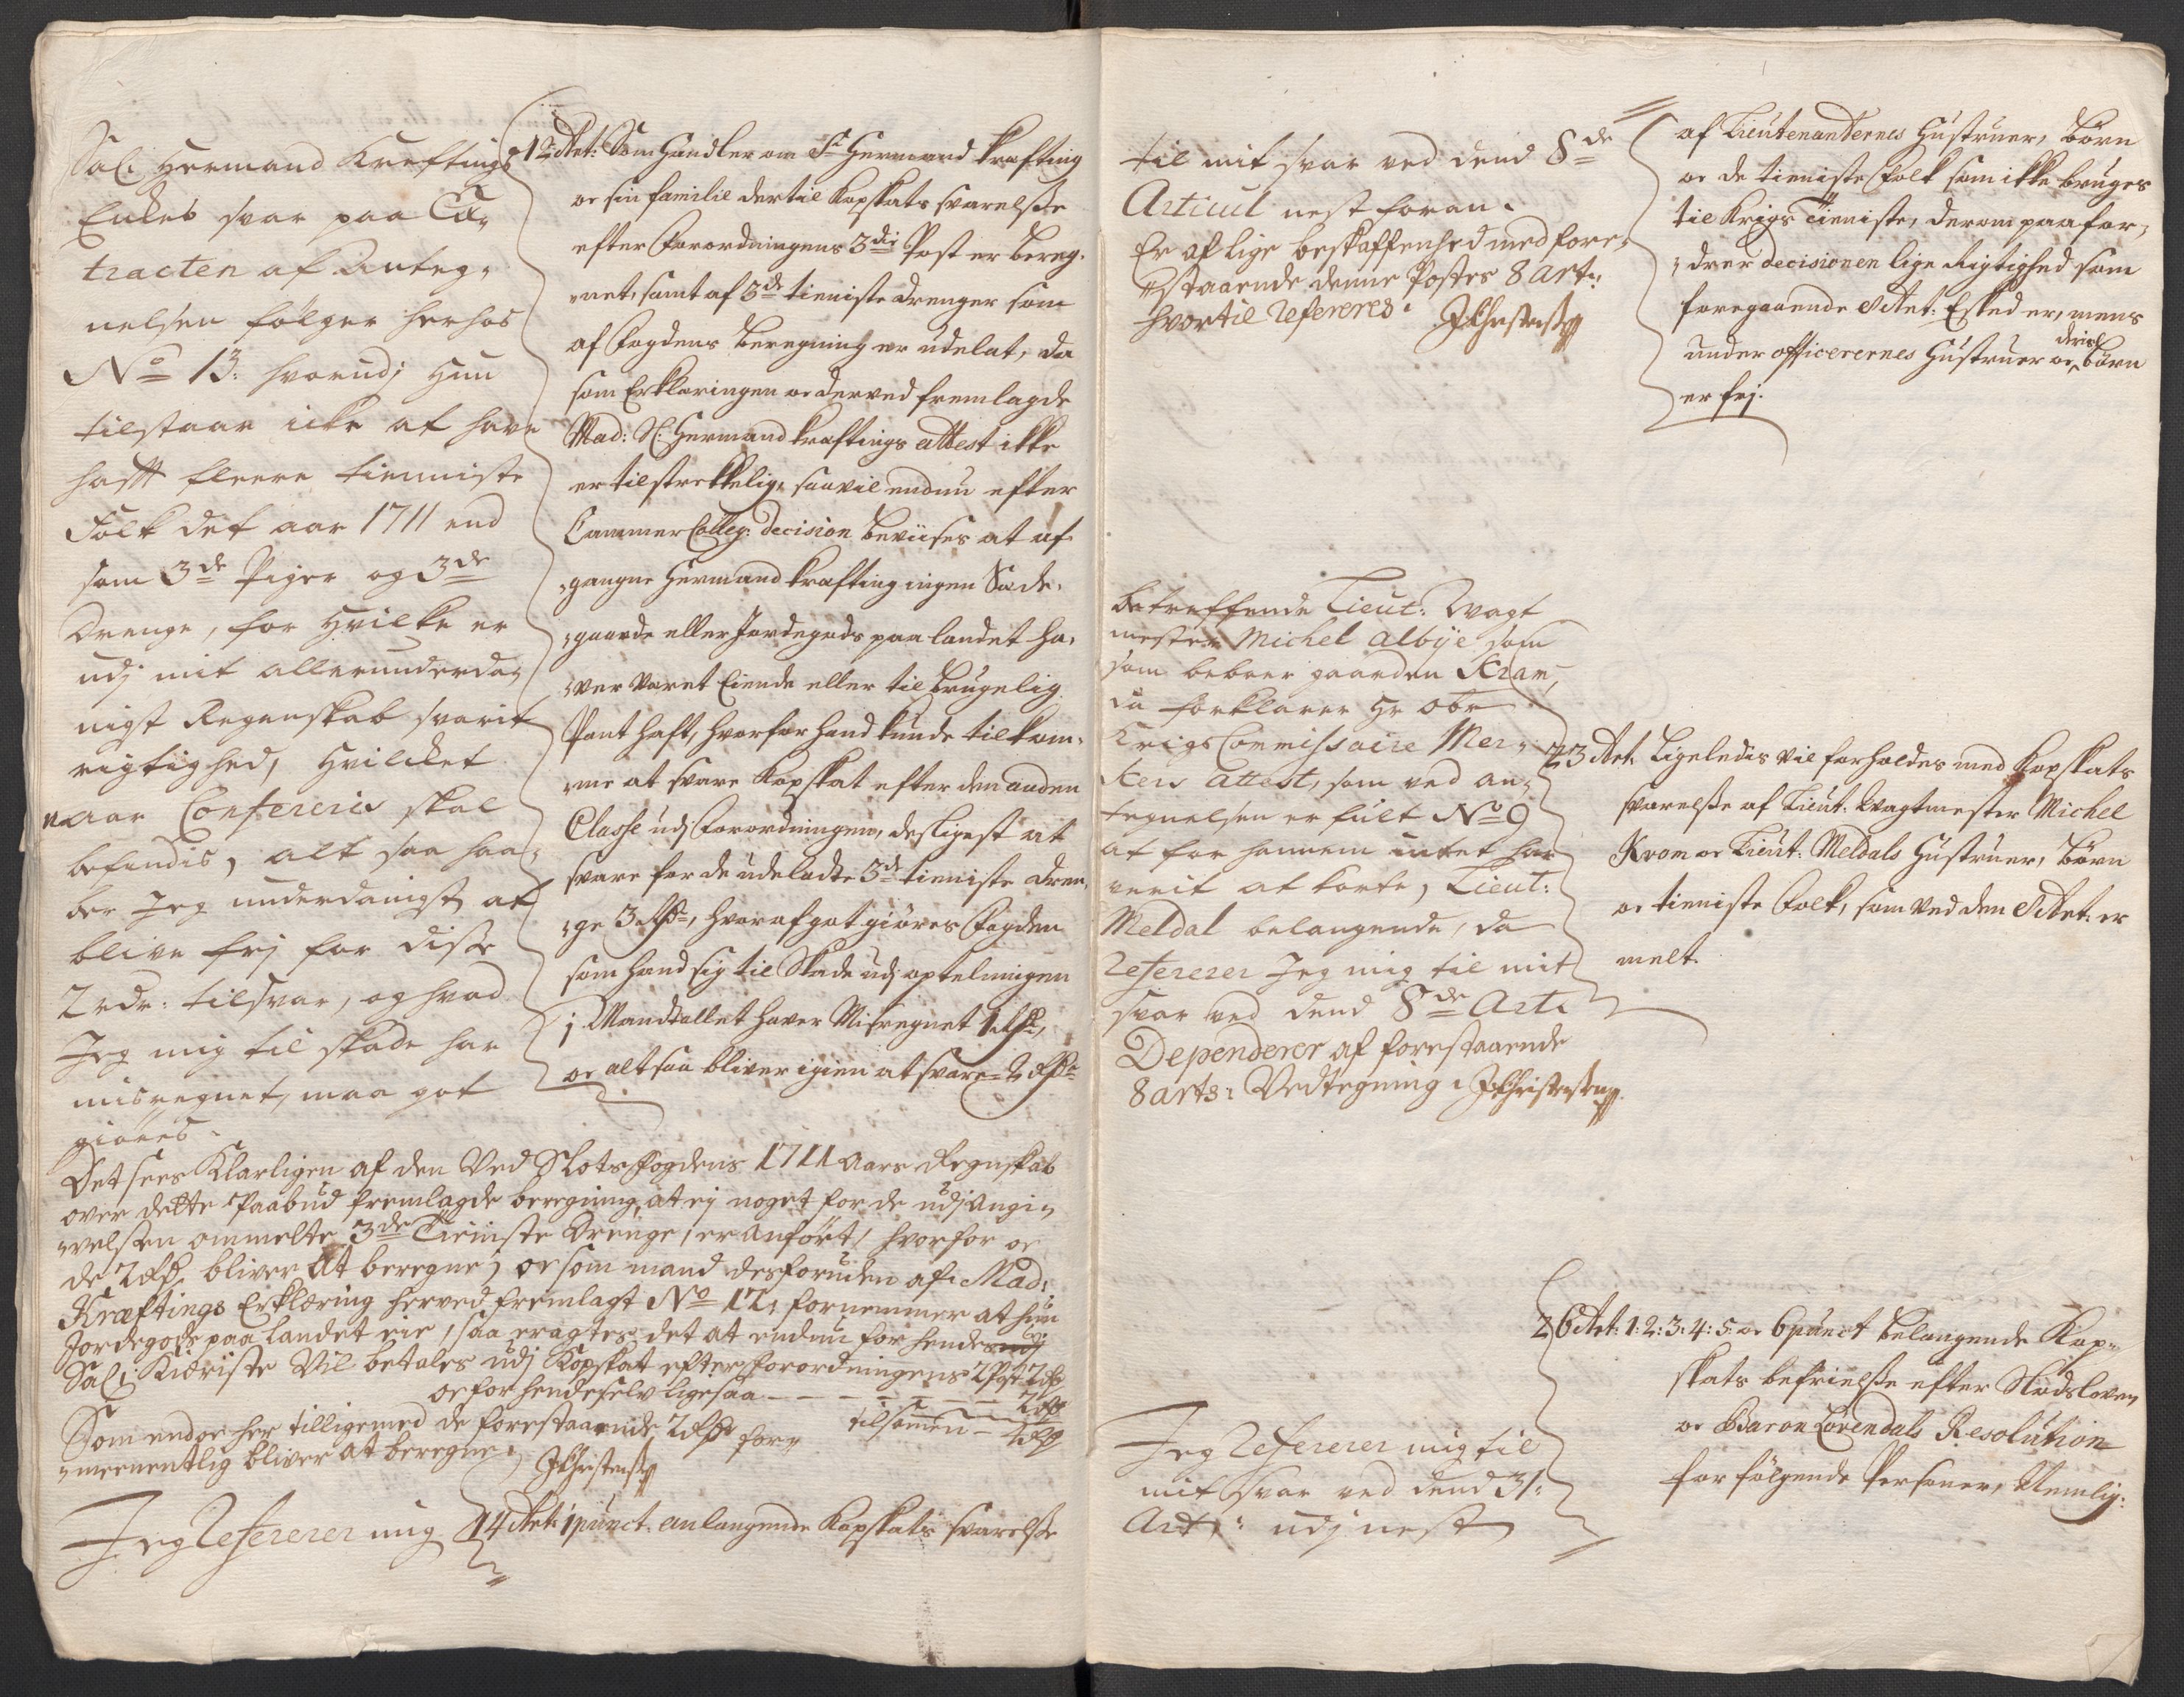 Sal: Hermand Kreftings
Enkes svar paa Ex¬
tracten af Anteg¬
nelsen følger herhos
No 13: hvorudj Hun
tilstaar icke at have
hafft fleere tienniste
Folk det aar 1711 end
som 3de Piger og 3de
Drenge, for hvilke er
udj mit allerunderda¬
nigst Regenskab svarit
rigtighed, hvilcket
naar Confereris skal
befindis, alt saa haa¬
ber Jeg underdanigst at
blive frj for disse
2 rdr: tilsvar, og hvad
Jeg mig til skade har
misregnet, maa got
giøres.
12 Art: Som handler om Sr Hermand Krafting
oc sin familie dertil Kopskats svarelse
efter Forordningens 3die Post er bereg¬
net, samt af 3de tieniste drenger som
af Fogdens beregning er udelat, da
som Erklæringen oc derved fremlagde
Mad: Sl: Hermand Kraftings attest ikke
er tilstrekkelig, saa vil endnu efter
Cammer Colleg: decision beviises at af¬
gangne Hermand Krafting ingen Sæde¬
gaarde eller Jordegods paa landet ha¬
ver været Eiende eller til brugelig
Pant haft, hvorfor hand kunde tilkom¬
me at svare Kopskat efter den anden
Classe udj Forordningen, desligest at
svare for de udeladte 3de tieniste dren¬
ge 3 rdr, hvoraf got giøres Fogden
som hand sig til Skade udj optelningen
j Mandtallet haver Misregnet 1 rdr,
oc alt saa bliver igien at svare 2 rdr
Det sees Klarligen af den Ved SlotsFogdens 1711 Aars Regnskab
over dette Paabud fremlagde beregning, at ej noget for de udj Angi¬
velsen ommelte 3de Tieniste Drenge, er Anført, hvorfor oc
de 2 rdr bliver At beregne, oc som mand desforuden af Mad:
Kræftings Erklæring herved fremlagt No 12, fornemmer at hun
Jordegods paa Landet eie, saa eragtes det at endnu for hendes
Sal: Kiæriste Vil betales udj Kopskat efter Forordningens 2 Post 2 rdr
oc for hende selv ligesaa - - - - 2 rdr
Som endoc her tilligemed de forestaaende 2 rdr for¬ tilsamen -
meenentlig bliver at beregne. JChristensen
Jeg Refererer mig
14 Art: 1 punct. anlangende Kopskats svarelse
til mit svar ved dend 8de
Articul nest foran.
Er af lige beskaffenhed med fore¬
staaende denne Postes 8 Art:
hvortil refereres. JChristensen
af Lieutenanternes Hustruer, børn
oc de tieniste Folk som ikke bruges
til Krigs Tieniste, derom paafor¬
drer decisionen lige Rigtighed som
foregaaende 8 Art: Esked er, mens
under officerernes Hustruer oc deris børn
er frj.
betreffende Lieut: Wagt
mester Michel Albÿe som
som beboer gaarden Kram,
da forklarer Hr Obr
Krigs Commissaire Mer¬
kers attest, som ved an¬
tegnelsen er fult No 9
at for hannem intet har
verit at korte, Lieut:
Meldal belangende, da
refererer Jeg mig til mit
svar ved dend 8de Art:
Dependerer af forestaaende
8 arts: Vedtegning. JChristensen
23 Art: Ligeledis vil forholdes med Kopskats
svarelse af Lieut: Wagtmester Michel
Krom oc Lieut: Meldals Hustruer, børn
oc tieniste Folk, som ved den 8 Art: er
melt.
Jeg Refererer mig til
mit svar ved dend 31:
Art: udj nest
26 Art: 1: 2: 3: 4: 5: oc 6 punct belangende Kop¬
skats befrielse efter Slodsloven
oc Baron Løvendals Resolution
for følgende Personer, Nemlig: